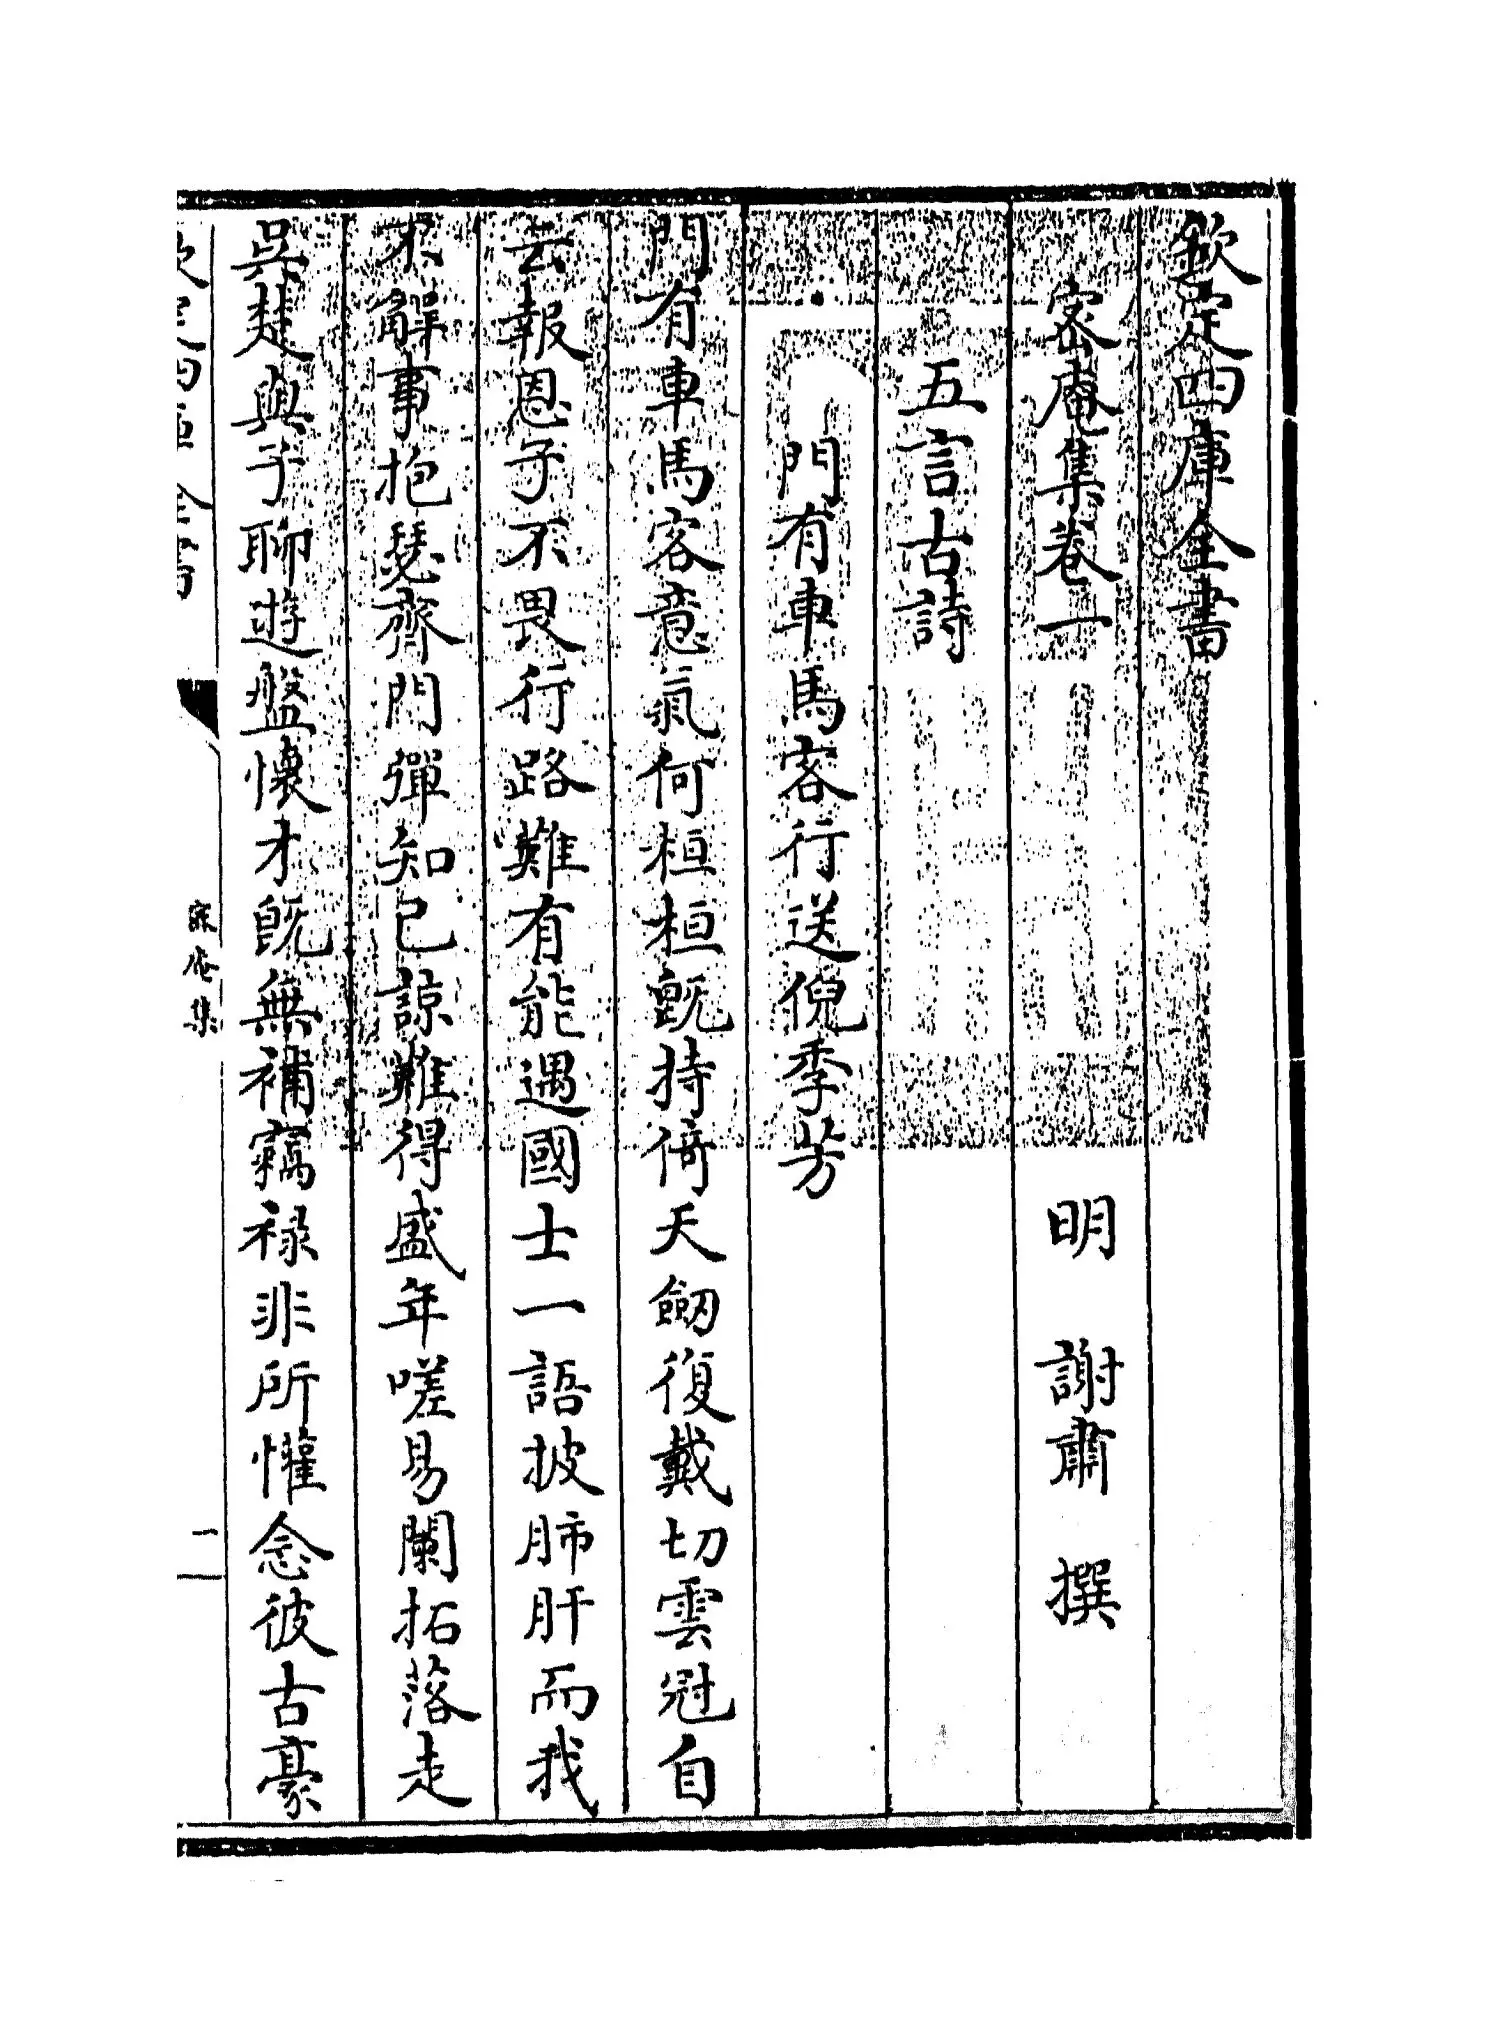 欽定四庫全書
密庵集卷一
明 謝肅 撰
五言古詩
門有車馬客行送倪季芳
門有車馬客意氣何桓桓旣持倚天劒復戴切雲冠自
云報恩子不畏行路難有能遇國士一語披肺肝而我
不解事抱瑟齊門彈知己諒難得盛年嗟易闌拓落走
吳楚與子聊遊盤懷才旣無補竊禄非所懽念彼古豪
欽定四庫全書
密庵集
一